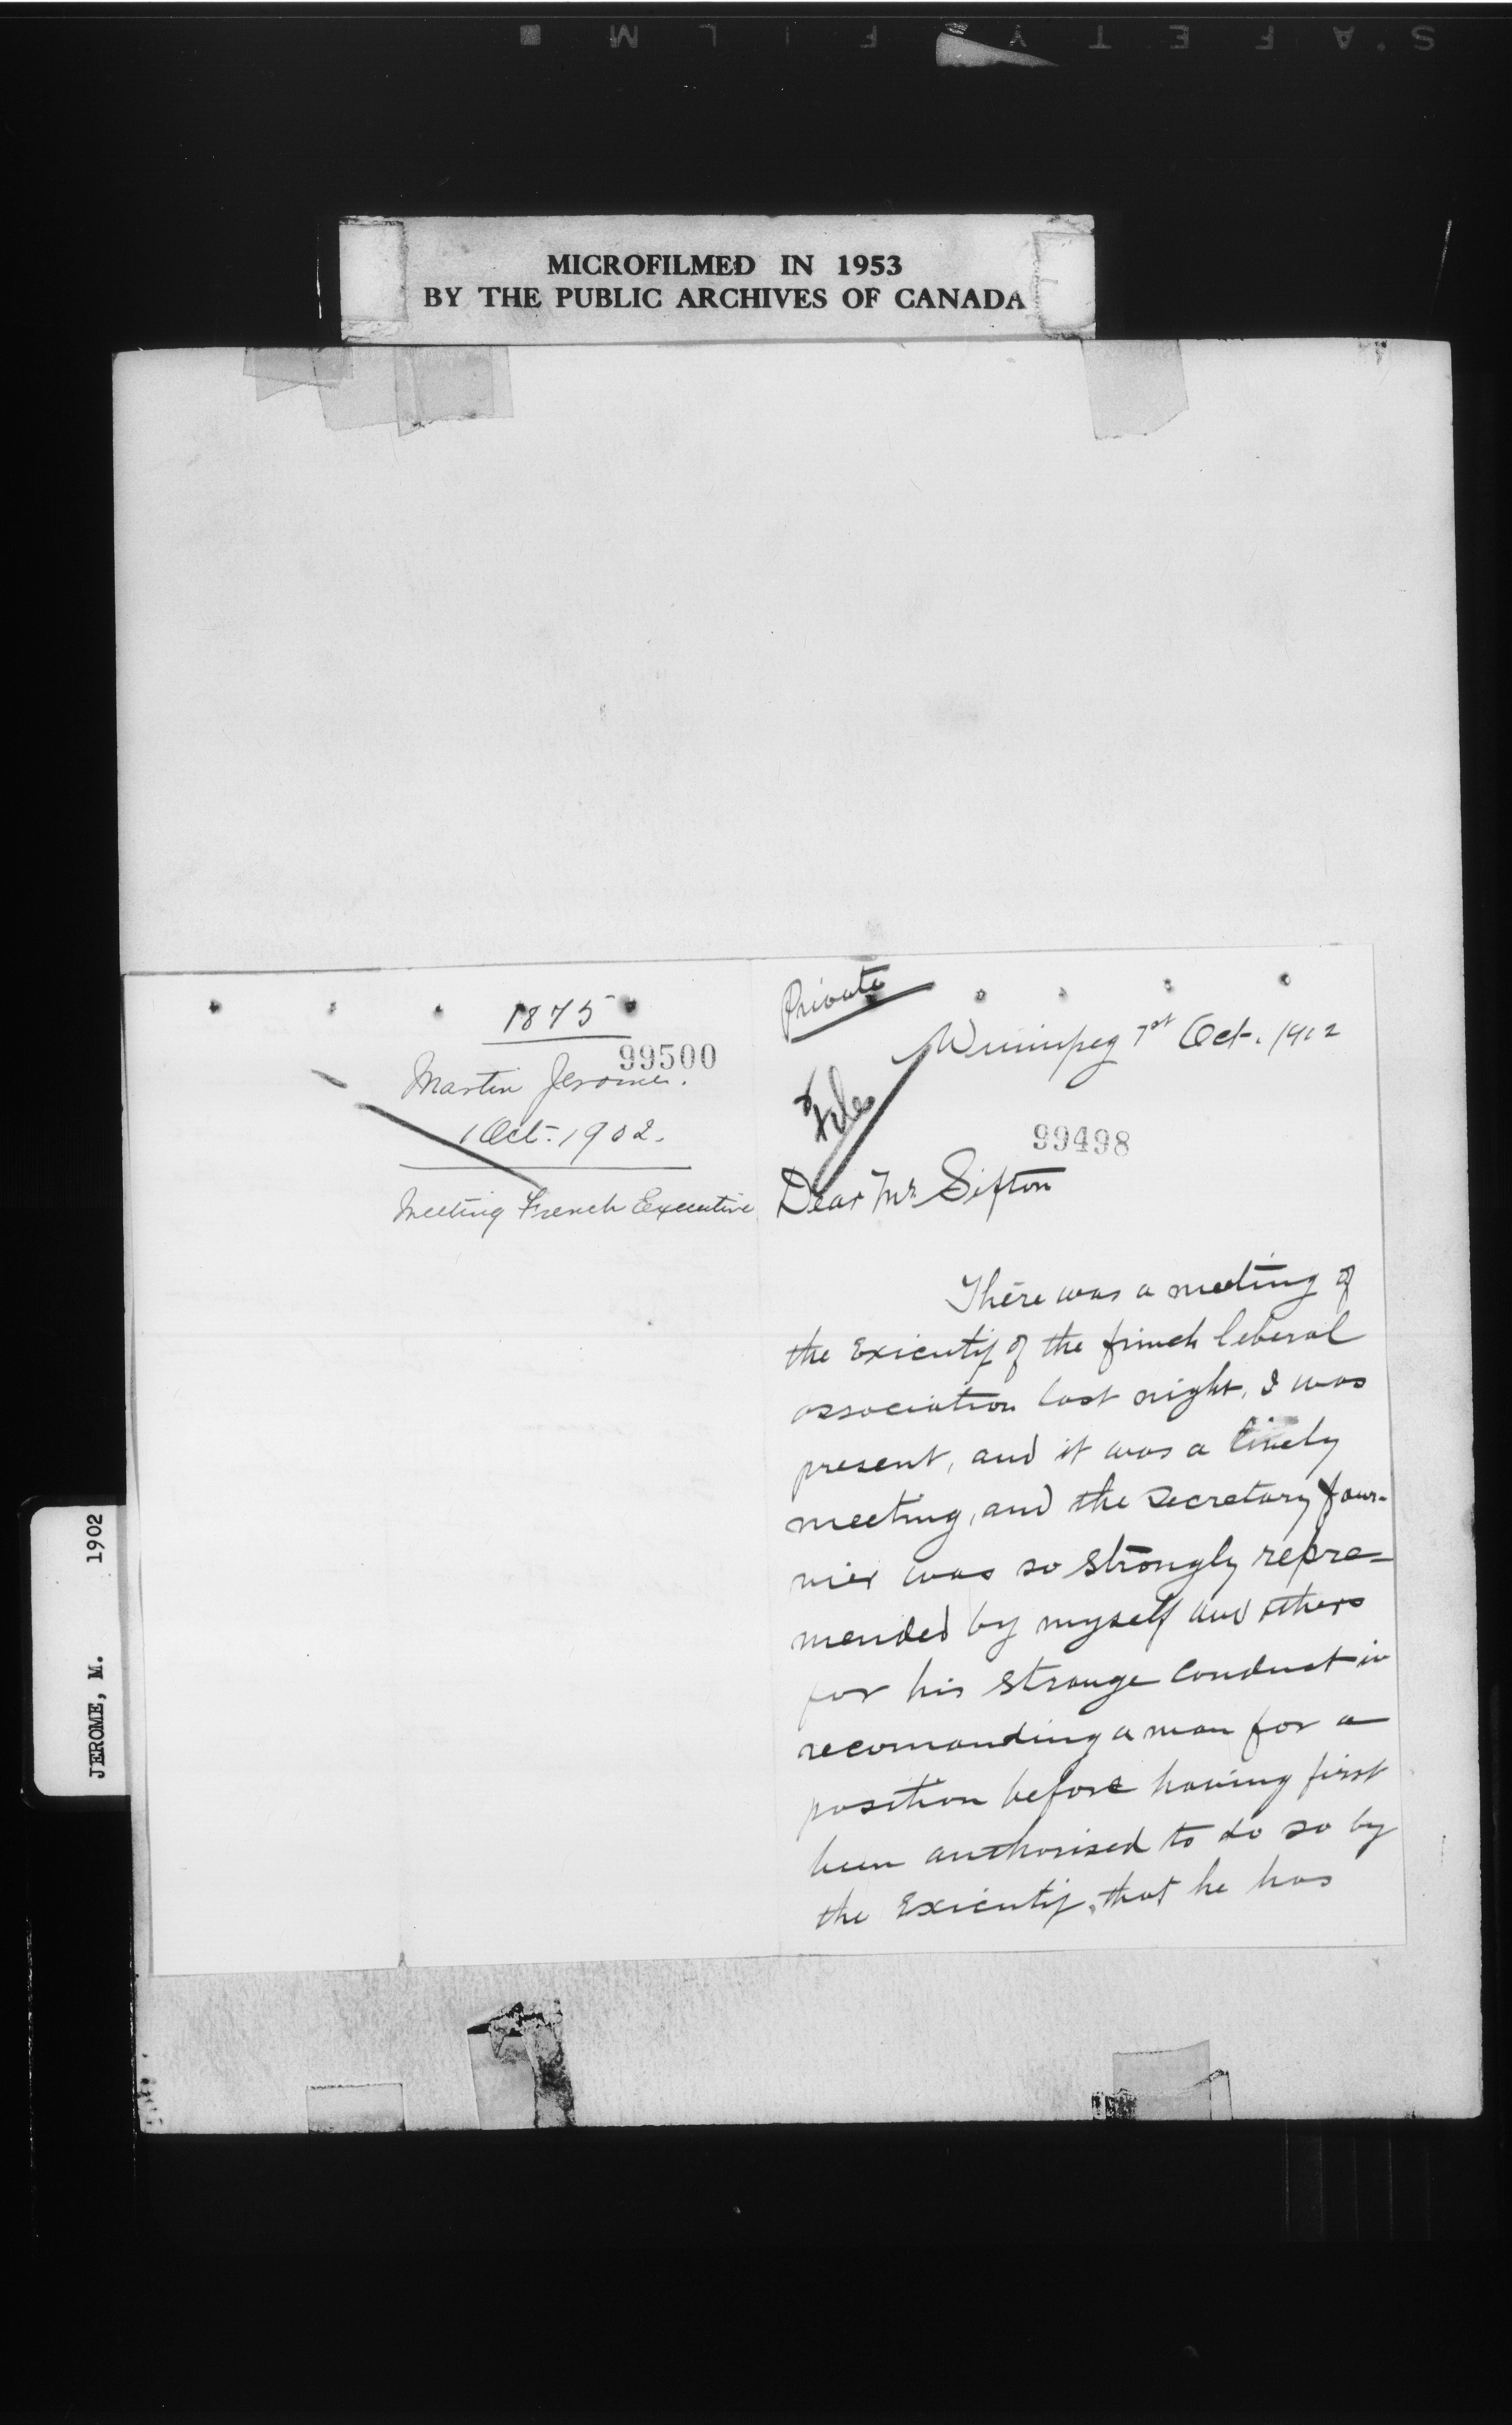 SAFETY FILM
MICROFILMED IN 1953
BY THE PUBLIC ARCHIVES OF CANADA
JEROME, M. 1902
1875
99500
Martin Jerome.
1 Oct. 1902.
Meeting French Executive
Private
Winnipeg 1st Oct. 1902
File
99498
Dear Mr Sifton
There was a meeting of
the Exicutif of the frinch liberal
association last night, I was
present, and it was a lively
meeting, and the Secretary four-
nier was so strongly repre-
mended by myself and others
for his strange conduct in
recomanding a man for a
position before having first
been authorised to do so by
the Exicutif, that he has